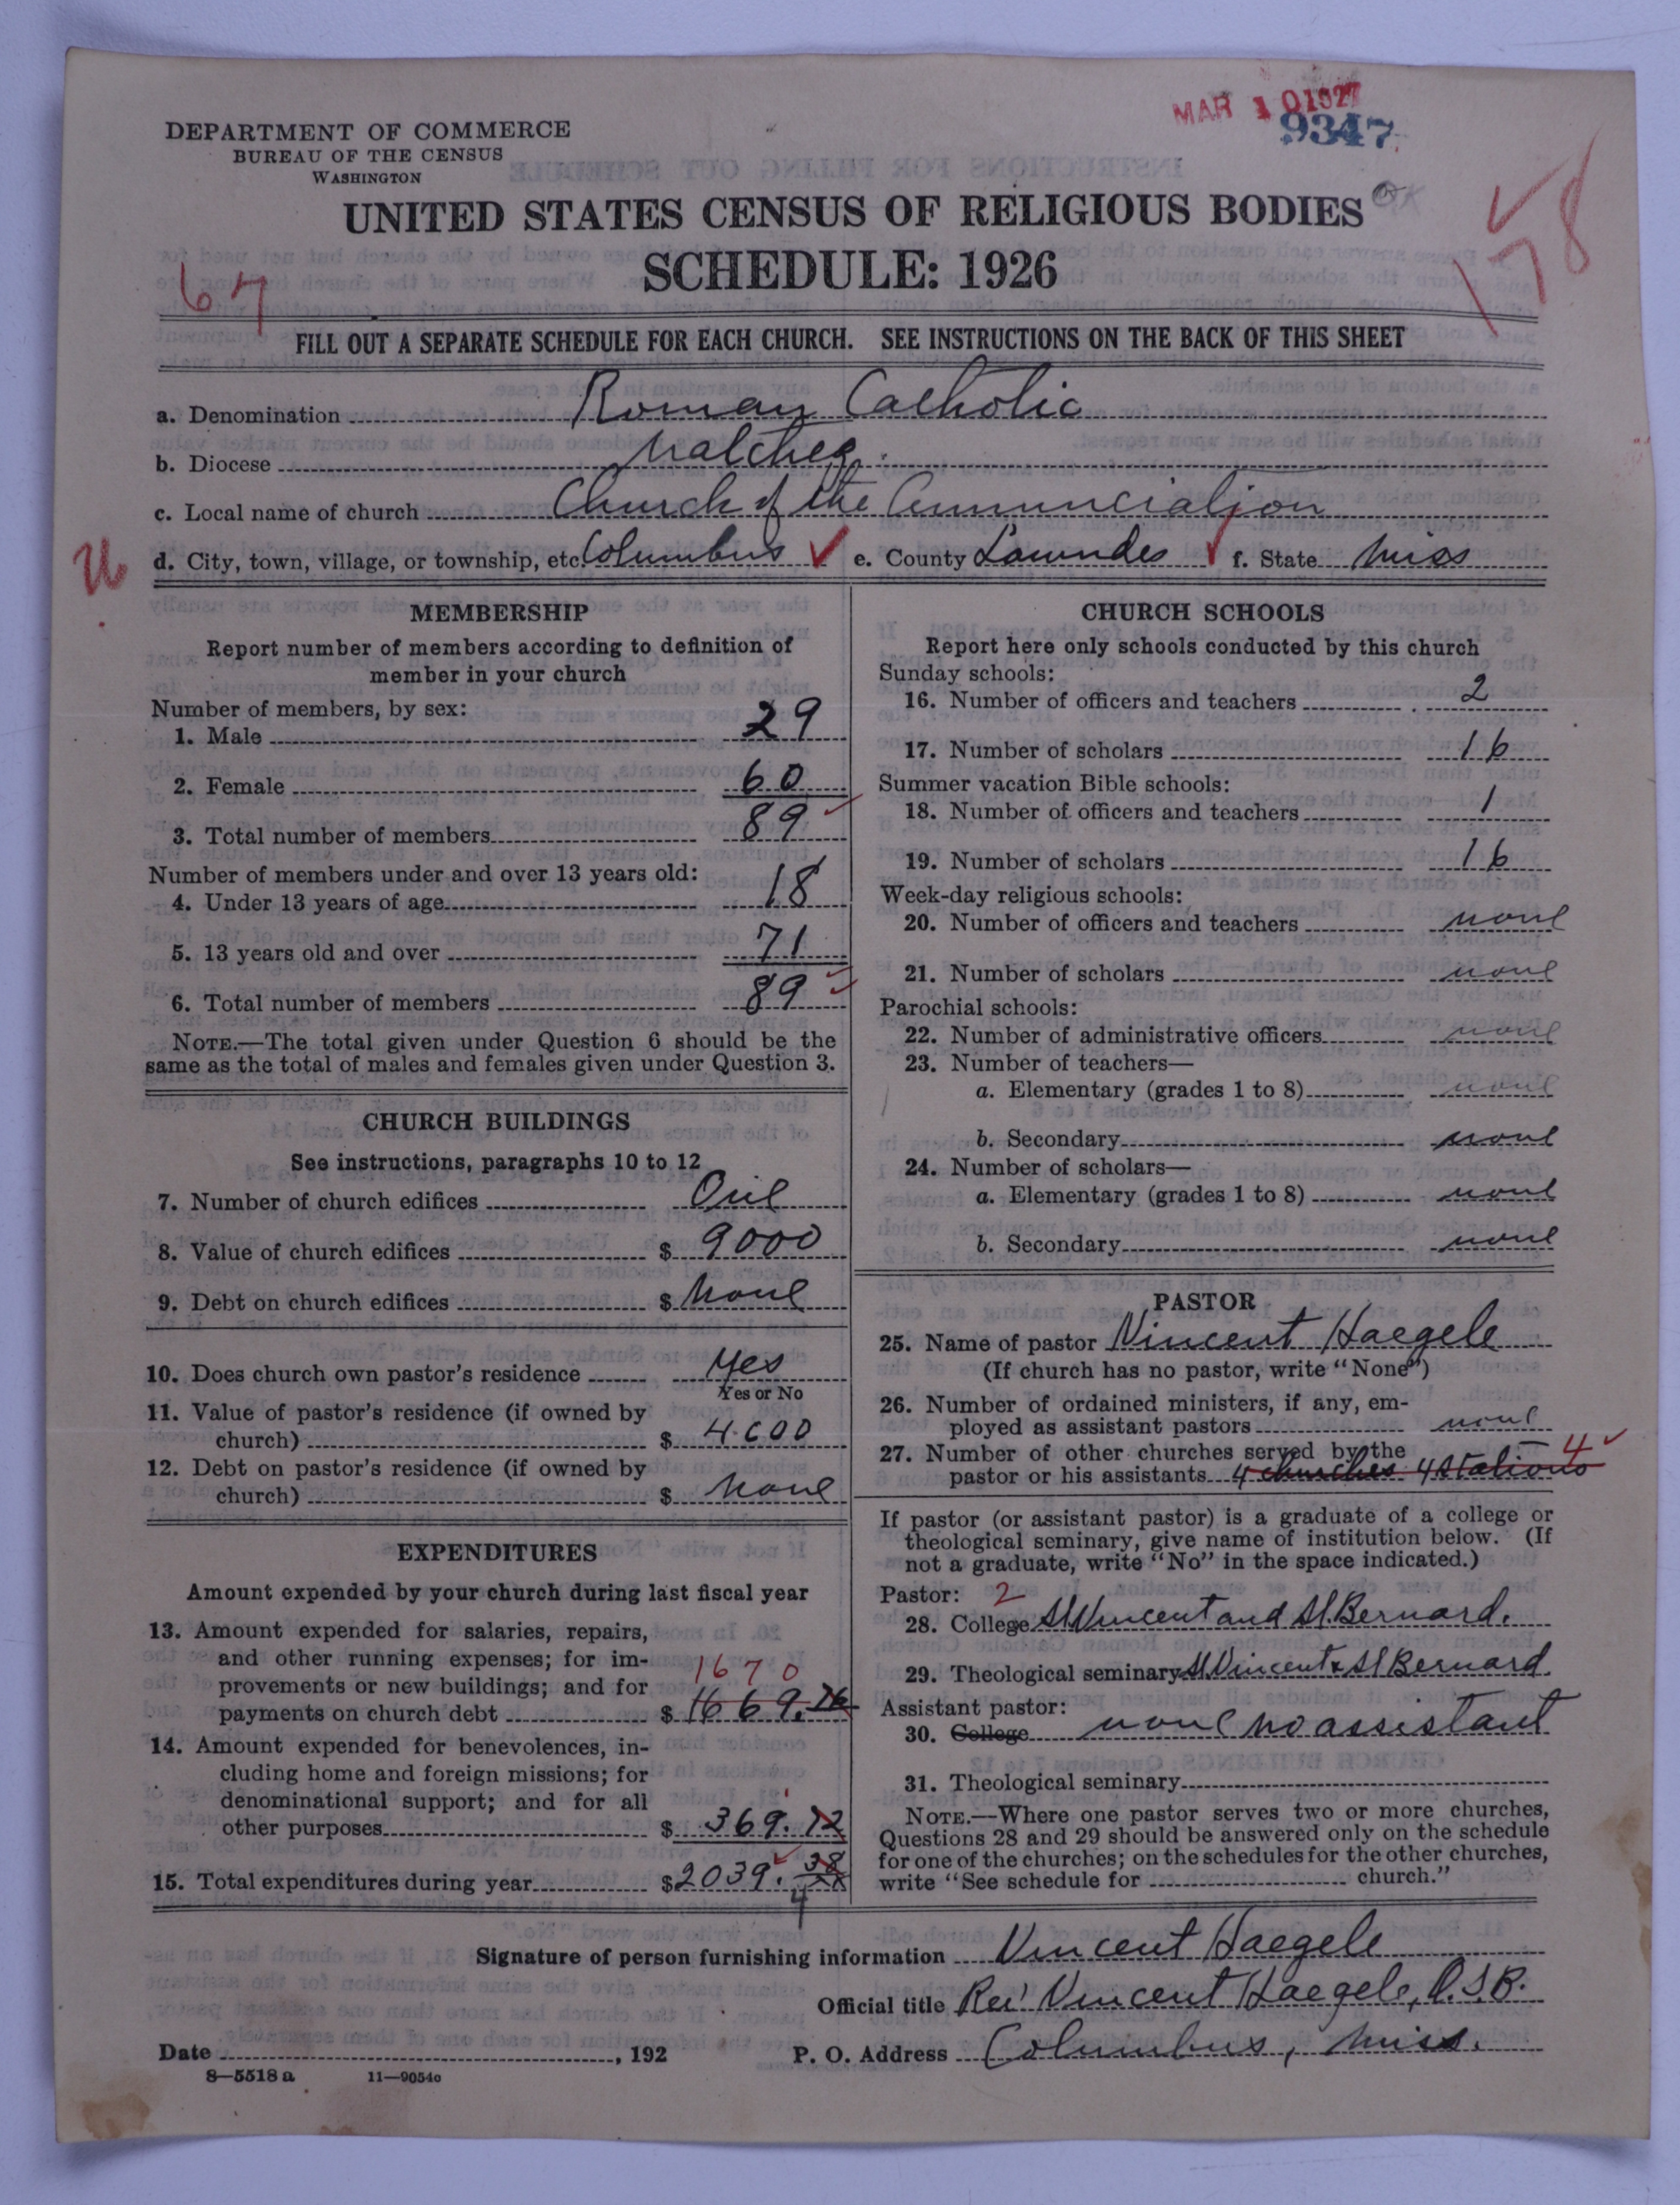 MAR 10 1927
9347
DEPARTMENT OF COMMERCE
BUREAU OF THE CENSUS
WASHINGTON
UNITED STATES CENSUS OF RELIGIOUS BODIES
SCHEDULE: 1926
67
158
FILL OUT A SEPARATE SCHEDULE FOR EACH CHURCH. SEE INSTRUCTIONS ON THE BACK OF THIS SHEET
a. Denomination Roman Catholic
b. Diocese Natchez
c. Local name of church Church of the Annunciation
d. City, town, village, or township, etc. Columbus e. County Lowndes f. State Miss
MEMBERSHIP
Report number of members according to definition of
member in your church
Number of members, by sex:
1. Male 29
2. Female 60
3. Total number of members 89
Number of members under and over 13 years old:
4. Under 13 years of age 18
5. 13 years old and over 71
6. Total number of members 89
NOTE.—The total given under Question 6 should be the
same as the total of males and females given under Question 3.
CHURCH BUILDINGS
See instructions, paragraphs 10 to 12
7. Number of church edifices One
8. Value of church edifices $ 9000
9. Debt on church edifices $ None
10. Does church own pastor's residence Yes
Yes or No
11. Value of pastor's residence (if owned by
church) $ 4000
12. Debt on pastor's residence (if owned by
church) $ None
EXPENDITURES
Amount expended by your church during last fiscal year
13. Amount expended for salaries, repairs,
and other running expenses; for im-
provements or new buildings; and for
1670
payments on church debt $ 1669.26
14. Amount expended for benevolences, in-
cluding home and foreign missions; for
denominational support; and for all
other purposes $ 369.12
15. Total expenditures during year $ 2039.38
CHURCH SCHOOLS
Report here only schools conducted by this church
Sunday schools:
16. Number of officers and teachers 2
17. Number of scholars 16
Summer vacation Bible schools:
18. Number of officers and teachers 1
19. Number of scholars 16
Week-day religious schools:
20. Number of officers and teachers none
21. Number of scholars none
Parochial schools:
22. Number of administrative officers none
23. Number of teachers—
a. Elementary (grades 1 to 8) none
b. Secondary none
24. Number of scholars—
a. Elementary (grades 1 to 8) none
b. Secondary none
PASTOR
25. Name of pastor Vincent Haegele
(If church has no pastor, write "None")
26. Number of ordained ministers, if any, em-
ployed as assistant pastors none
27. Number of other churches served by the
pastor or his assistants 4 churches 4 stations 4
If pastor (or assistant pastor) is a graduate of a college or
theological seminary, give name of institution below. (If
not a graduate, write "No" in the space indicated.)
Pastor: 2
28. College St Vincent and St. Bernard.
29. Theological seminary St. Vincent & St Bernard.
Assistant pastor:
30. College none no assistant
31. Theological seminary
NOTE.—Where one pastor serves two or more churches,
Questions 28 and 29 should be answered only on the schedule
for one of the churches; on the schedules for the other churches,
write "See schedule for church."
Signature of person furnishing information Vincent Haegele
Official title Rev Vincent Haegele, O.S.B.
Date , 192
P. O. Address Columbus, Miss.
8—5518 a 11—9054c